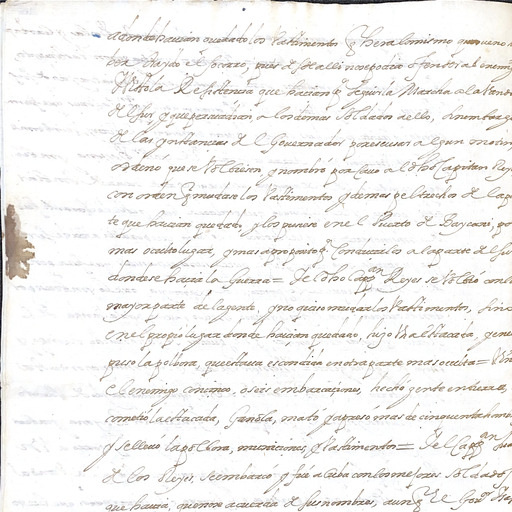 donde havian quedado los Vastimentos q hera lo mismo que no
el Socorro, pues desde alli no se podia ofender al enemigo
Vistola Resistencia que hacian q seguir la Marcha a la Vanda
del Sur, y que persuadian a los demas Soldados a ello, sin embargo
de las ynstancias de el Governador por escusar algun motin
ordenó que se Volbiesen, y nombró por Cavo al dho Capitan Reyes
con orden q mudase los Vastimentos y demas peltrechos de la par
te que havian quedado, y los pusiese en el Puerto de Baycani, por
mas oculto lugar, y mas aproposito q Conducirlos a la parte de el Sur
donde se hacia la Guerra = El dho Capan Reyes se Volvió con la
mayor parte de la gente, y no quiso mudar los Vastimentos, sino
en el propio lugar donde havian quedado, hizo Vna Estacada, y en e
puso la polbora, que estava escondida en otra parte mas oculta = 
el enemigo con cinco, o seis embarcaciones, hechó gente en tierra,
cometió la estacada, Ganola, mató y apresó mas de cinquenta
y se llevó la polbora, municiones, y Vastimentos = El Capan Juan
de los Reyes, se embarcó y fué a Cuba con los mejores Soldados
que havia, que no se acuerda de sus nombres, aunq el Govor